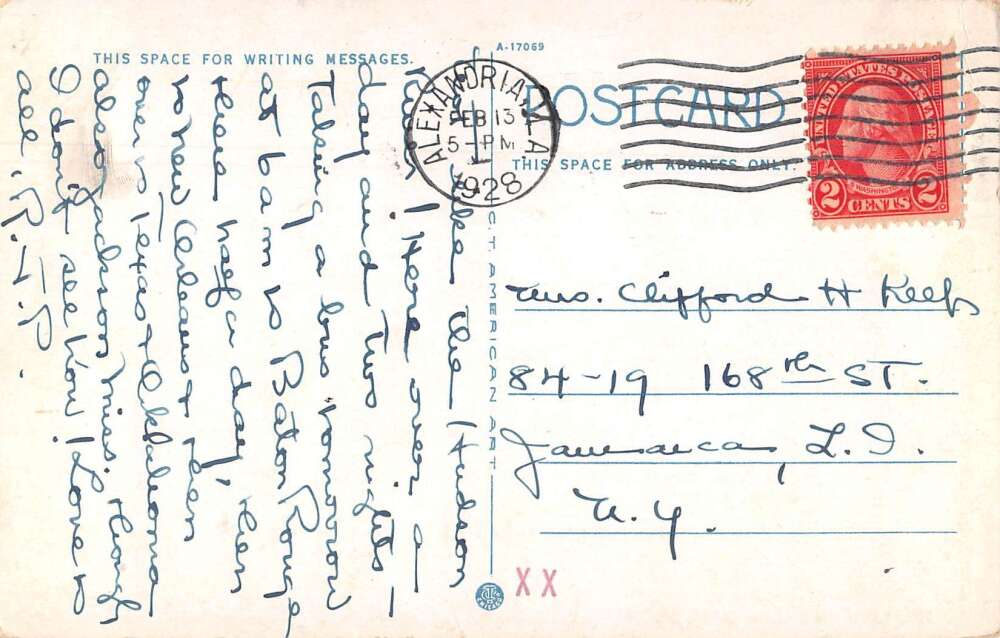 THIS SPACE FOR WRITING MESSAGES.
A-17069
POSTCARD
THIS SPACE FOR ADDRESS ONLY.
ALEXANDRIA, LA
FEB 13
5-PM
1928
UNITED STATES POSTAGE
WASHINGTON
2 CENTS 2
C.T. AMERICAN ART
Looks like the Hudson
River! Here over a
day and two nights –
Taking a bus tomorrow
at 6 am to Baton Rouge
there half a day, then
to New Orleans & then
over to Texas & Oklahoma
also Jackson Miss. though
I don't see how! Love to
all. R.F.R.
Mrs. Clifford H Keep
84-19 168th ST.
Jamaica, L.I.
N.Y.
XX